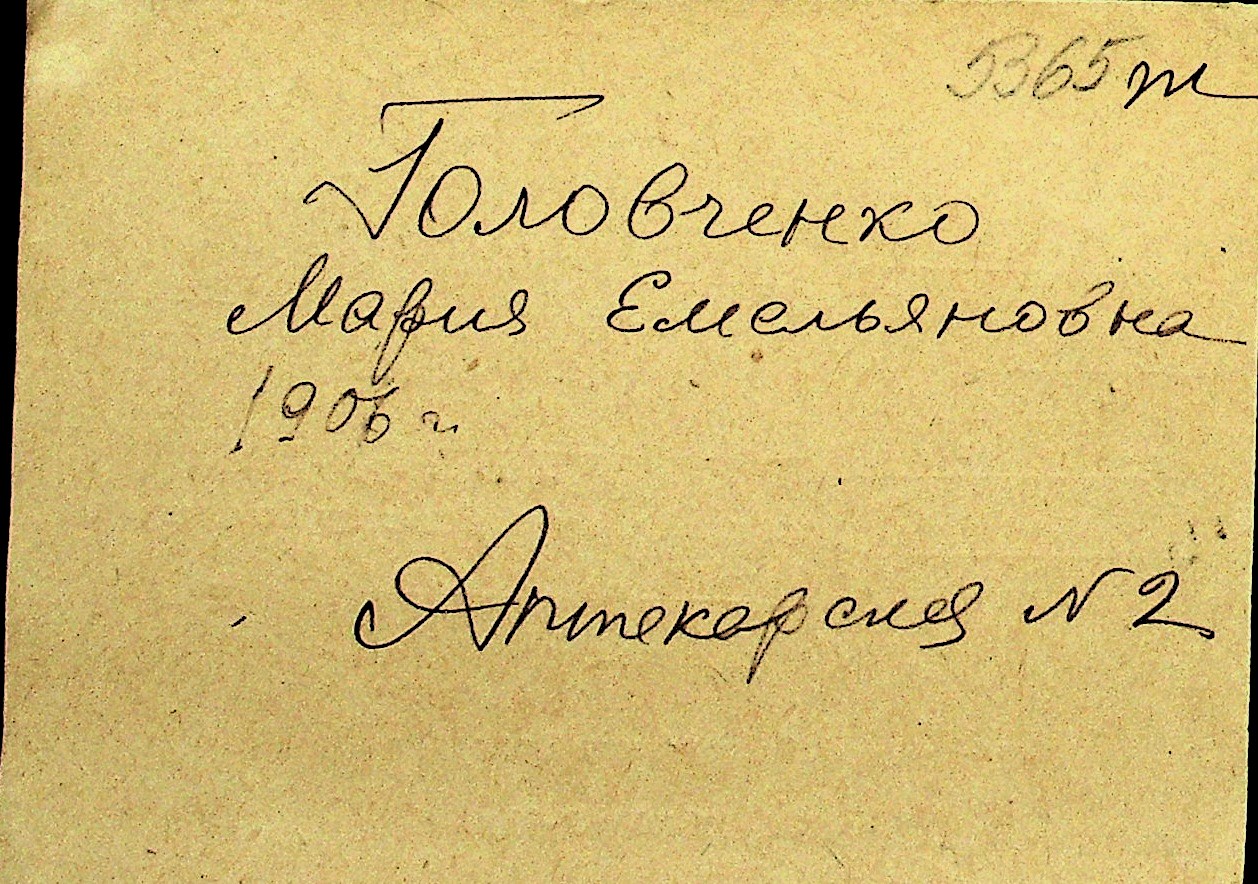 5365 т
Головченко
Мария Емельяновна
1906 г.
Аптекарская N 2